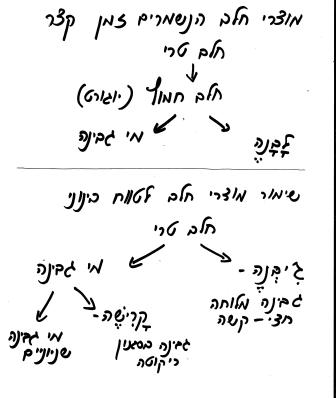 מוצרי חלב הנשמרים זמן קצר
חלב טרי
חלב חמוץ (יוגורט)
מי גבינה
לָבָּנֶה
שימור מוצרי חלב לטווח בינוני
חלב טרי
מי גבינה
גִ'יבְּנֶה -
גבינה מלוחה
חצי - קשה
קָרִישֶׁה -
גבינה בסגנון
ריקוטה
מי גבינה
שניוניים